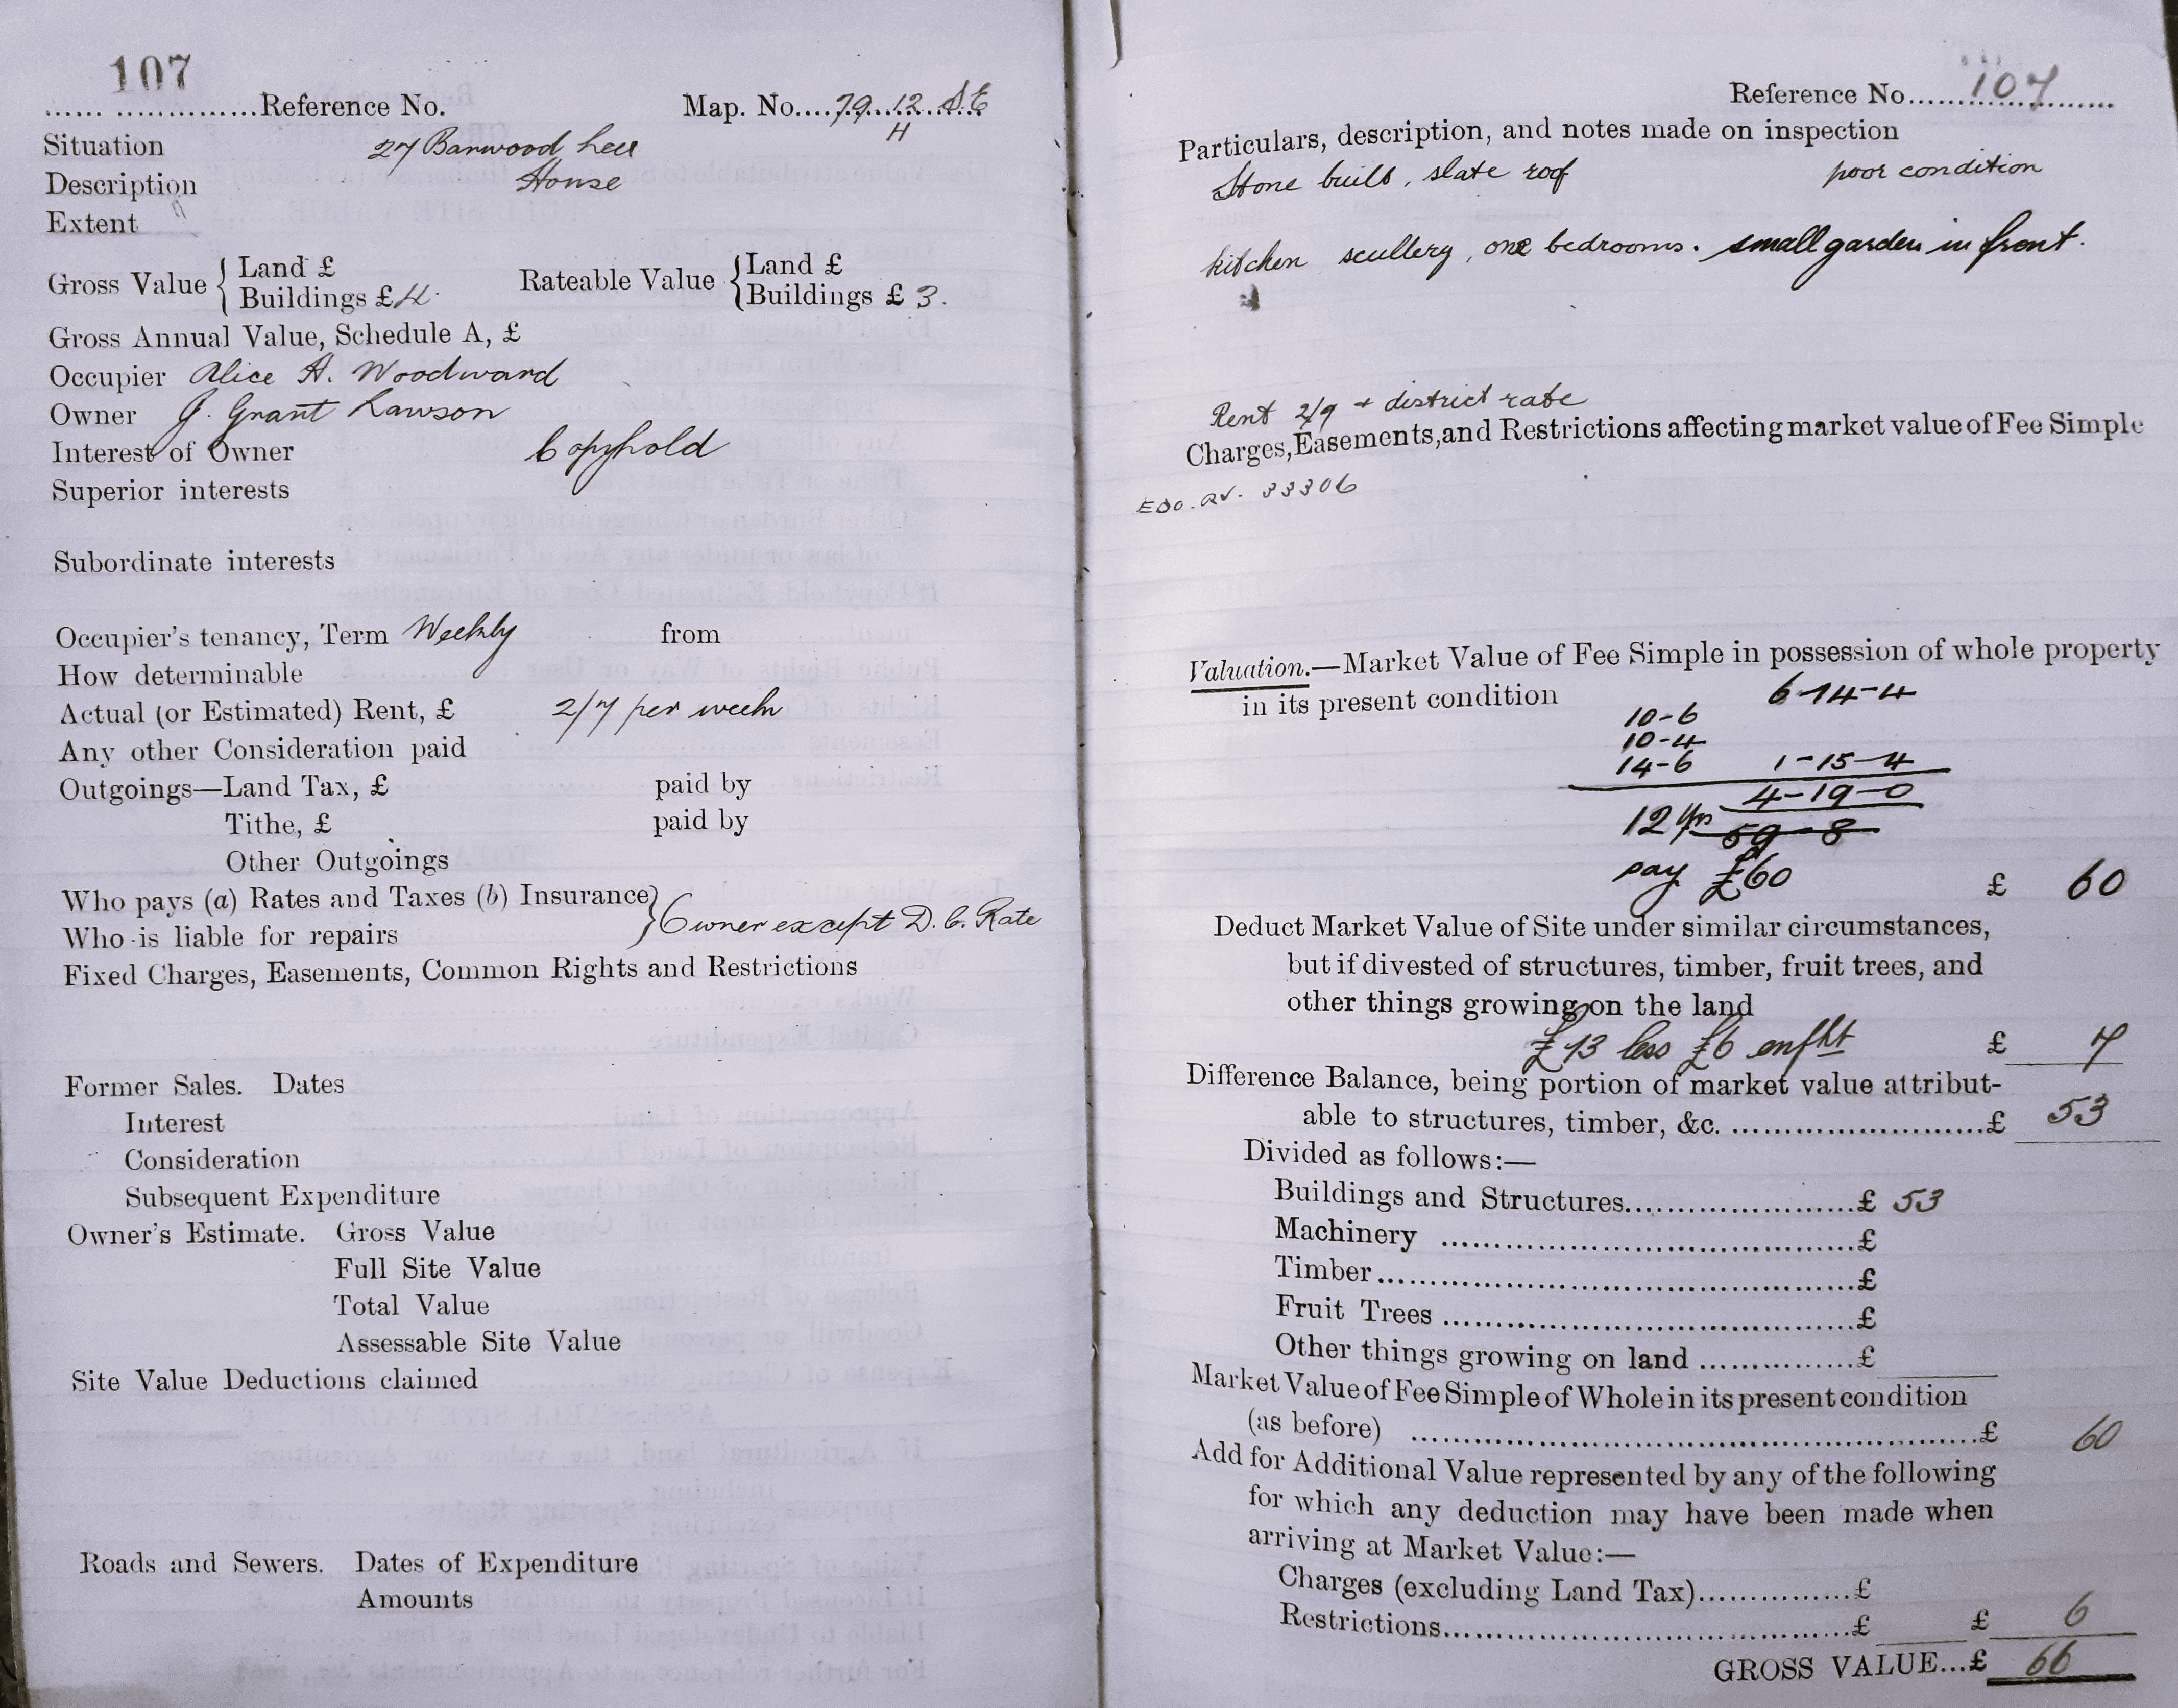 107
.................Reference No. Map. No....79.12.S.E
H
Situation 27 Barwood Lee
Description House
Extent
Gross Value { Land £ Rateable Value { Land £
Buildings £4. Buildings £ 3.
Gross Annual Value, Schedule A, £
Occupier Alice A. Woodward
Owner J. Grant Lawson
Interest of Owner Copyhold
Superior interests
Subordinate interests
Occupier's tenancy, Term Weekly from
How determinable
Actual (or Estimated) Rent, £ 2/7 per week
Any other Consideration paid
Outgoings—Land Tax, £ paid by
Tithe, £ paid by
Other Outgoings
Who pays (a) Rates and Taxes (b) Insurance } Owner except D. C. Rate
Who is liable for repairs
Fixed Charges, Easements, Common Rights and Restrictions
Former Sales. Dates
Interest
Consideration
Subsequent Expenditure
Owner's Estimate. Gross Value
Full Site Value
Total Value
Assessable Site Value
Site Value Deductions claimed
Roads and Sewers. Dates of Expenditure
Amounts
Reference No....107....
Particulars, description, and notes made on inspection
Stone built, slate roof poor condition
kitchen scullery, one bedrooms. small garden in front.
Rent 2/9 + district rate
Charges, Easements, and Restrictions affecting market value of Fee Simple
33306
Valuation.—Market Value of Fee Simple in possession of whole property
in its present condition 6-14-4
10-6
10-4
14-6 1-15-4
4-19-0
12 yrs 59-8
say £60 £ 60
Deduct Market Value of Site under similar circumstances,
but if divested of structures, timber, fruit trees, and
other things growing on the land
£13 less £6 enfht £ 7
Difference Balance, being portion of market value attribut-
able to structures, timber, &c. ........................£ 53
Divided as follows:—
Buildings and Structures.......................£ 53
Machinery .......................................£
Timber.............................................£
Fruit Trees .......................................£
Other things growing on land ...............£
Market Value of Fee Simple of Whole in its present condition
(as before) ......................................................£ 60
Add for Additional Value represented by any of the following
for which any deduction may have been made when
arriving at Market Value:—
Charges (excluding Land Tax)...............£
Restrictions........................................£ £ 6
GROSS VALUE...£ 66